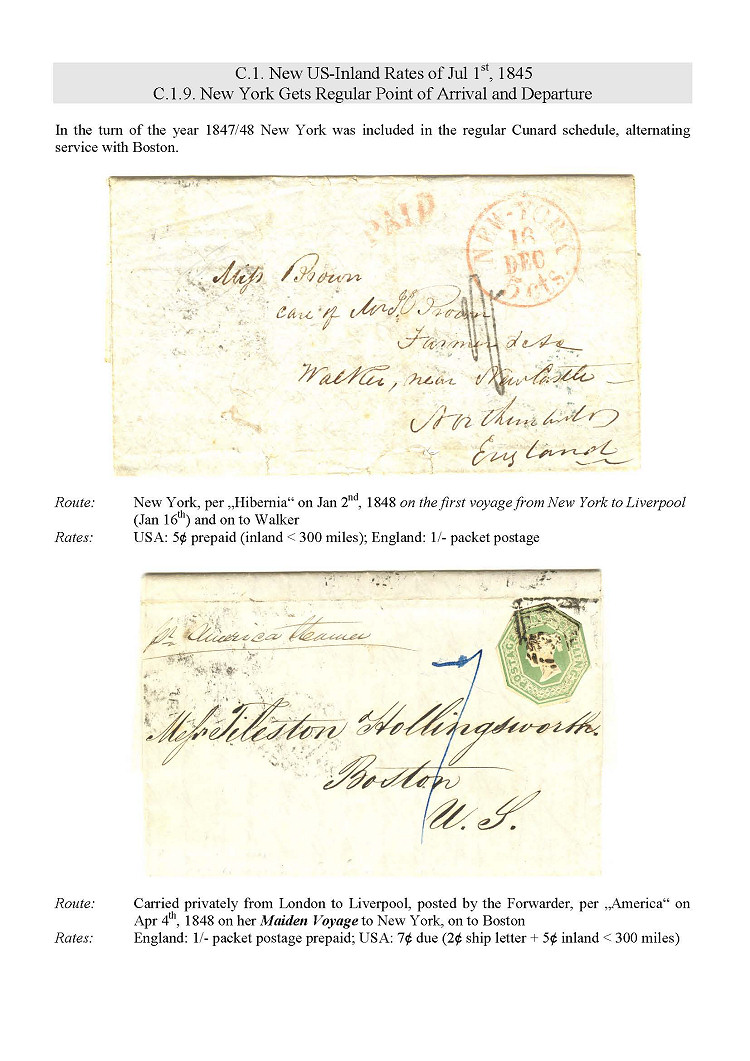 C.1. New US-Inland Rates of Jul 1st, 1845
C.1.9. New York Gets Regular Point of Arrival and Departure
In the turn of the year 1847/48 New York was included in the regular Cunard schedule, alternating
service with Boston.
PAID
NEW-YORK
16
DEC
5 cts.
Miss Brown
care of
Farmer &c &c
Walker, near NewCastle
England
Route: New York, per „Hibernia“ on Jan 2nd, 1848 on the first voyage from New York to Liverpool
(Jan 16th) and on to Walker
Rates: USA: 5¢ prepaid (inland < 300 miles); England: 1/- packet postage
pr America Steamer
POSTAGE
7
Messrs Tileston Hollingsworth.
Boston
U. S.
Route: Carried privately from London to Liverpool, posted by the Forwarder, per „America“ on
Apr 4th, 1848 on her Maiden Voyage to New York, on to Boston
Rates: England: 1/- packet postage prepaid; USA: 7¢ due (2¢ ship letter + 5¢ inland < 300 miles)